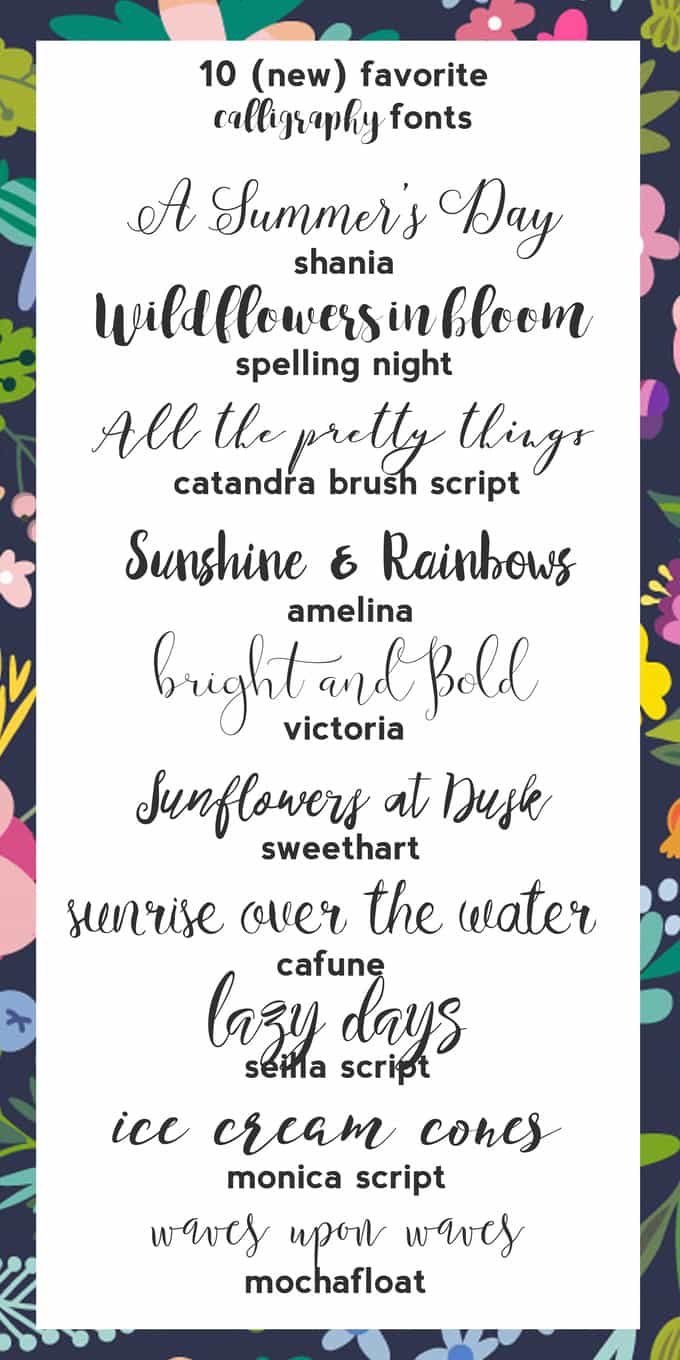 10 (new) favorite
calligraphy fonts
A Summer's Day
shania
Wildflowers in bloom
spelling night
All the pretty things
catandra brush script
Sunshine & Rainbows
amelina
bright and Bold
victoria
Sunflowers at Dusk
sweethart
sunrise over the water
cafune
lazy days
seilla script
ice cream cones
monica script
waves upon waves
mochafloat